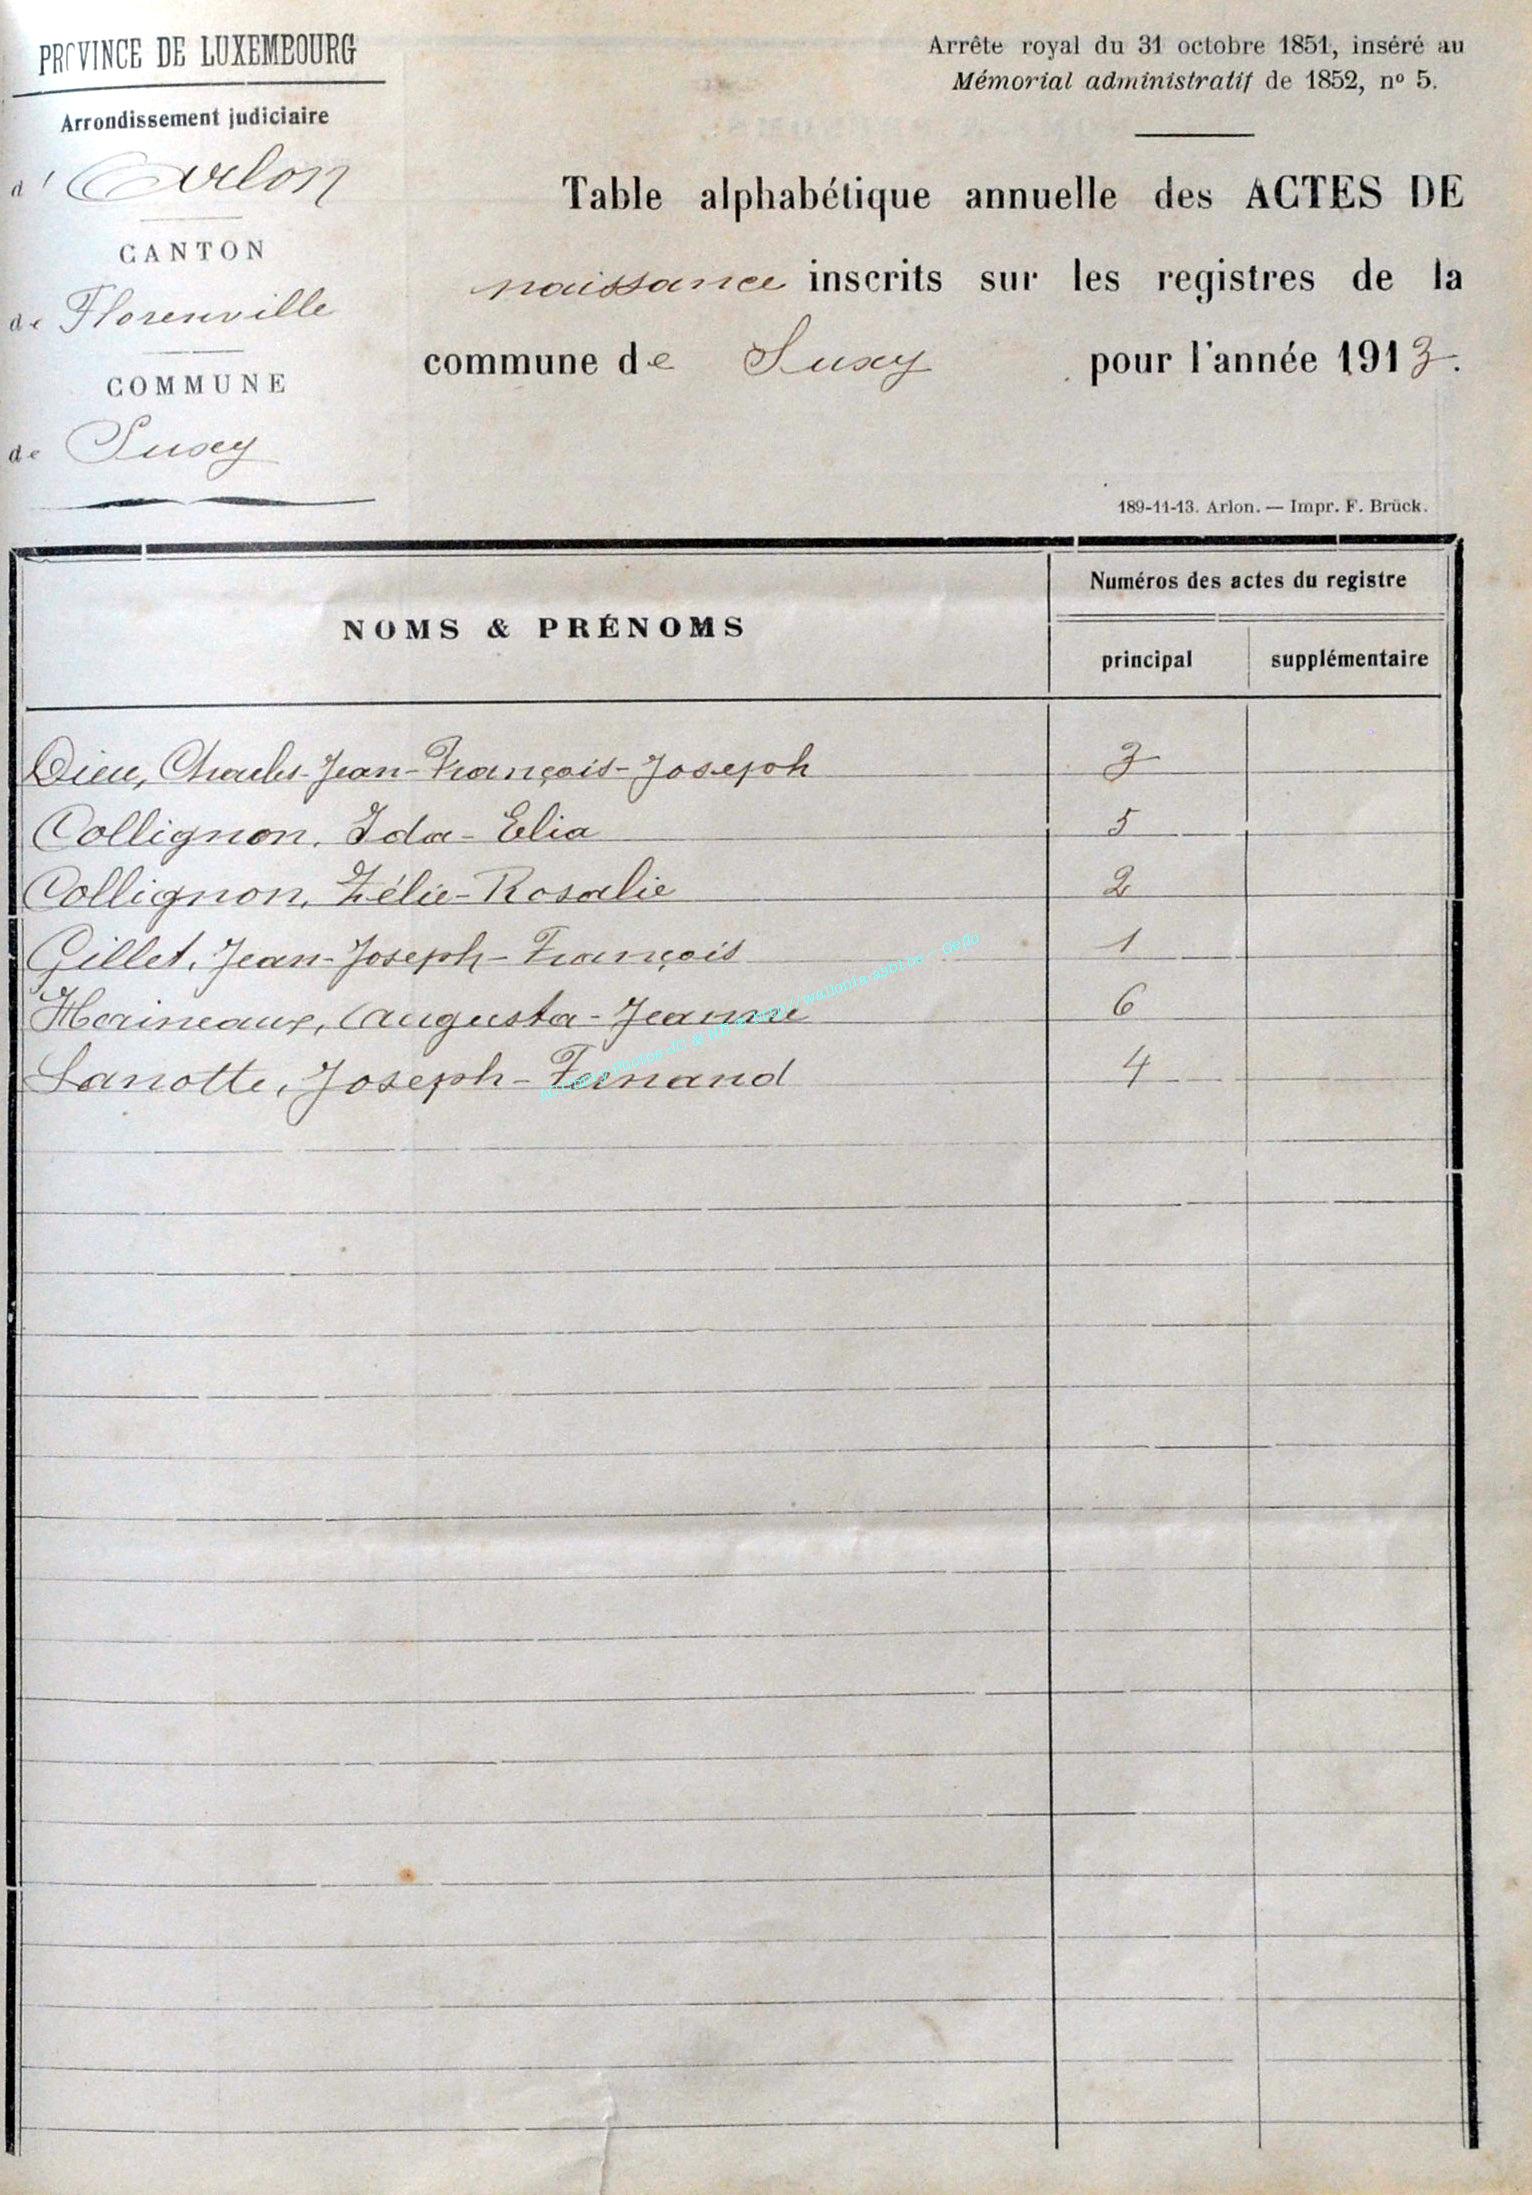 PROVINCE DE LUXEMBOURG
Arrondissement judiciaire
d'Arlon
CANTON
de Florenville
COMMUNE
de Suxy
Arrête royal du 31 octobre 1851, inséré au
Mémorial administratif de 1852, nº 5.
Table alphabétique annuelle des ACTES DE
naissance inscrits sur les registres de la
commune de Suxy pour l'année 1913.
189-11-13. Arlon. — Impr. F. Brück.
NOMS & PRÉNOMS
Numéros des actes du registre
principal supplémentaire
Dieu, Charles-Jean-François-Joseph 3
Collignon, Ida-Elia 5
Collignon, Zélie-Rosalie 2
Gillet, Jean-Joseph-François 1
Horineaux, Augusta-Jeanne 6
Lanotte, Joseph-Fernand 4
wallonia-asbl.be - Geflo